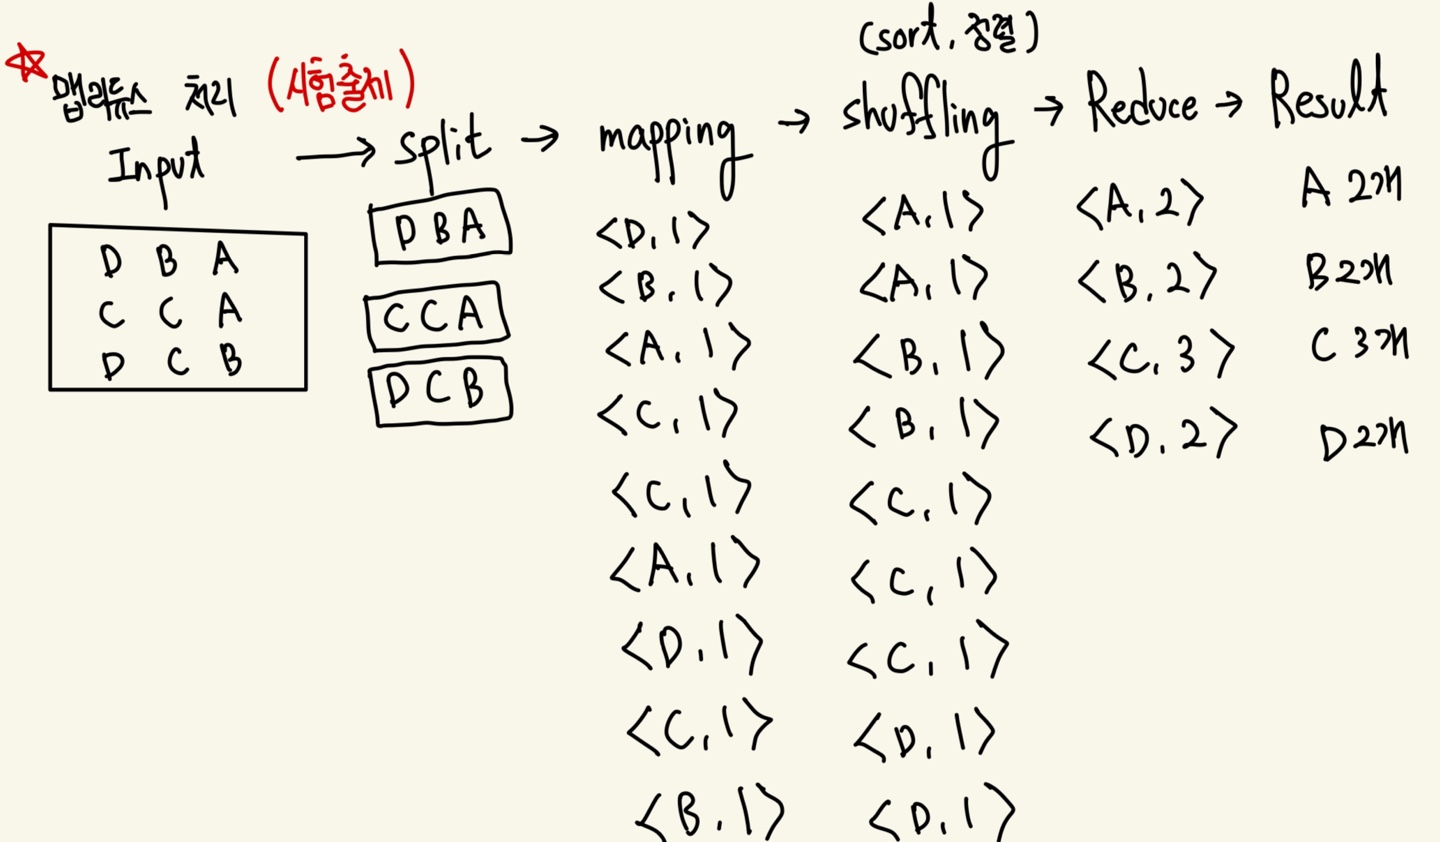 ☆ 맵리듀스 처리 (시험출제)
Input → split → mapping → shuffling → Reduce → Result
(sort, 정렬)
D B A
C C A
D C B
D B A
C C A
D C B
<D, 1>
<B, 1>
<A, 1>
<C, 1>
<C, 1>
<A, 1>
<D, 1>
<C, 1>
<B, 1>
<A, 1>
<A, 1>
<B, 1>
<B, 1>
<C, 1>
<C, 1>
<C, 1>
<D, 1>
<D, 1>
<A, 2>
<B, 2>
<C, 3>
<D, 2>
A 2개
B 2개
C 3개
D 2개